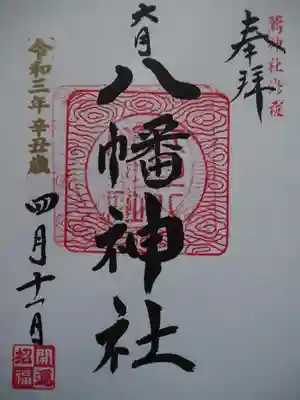 奉拝
大月
八幡神社
令和三年 辛丑歳
四月十一日
開運
招福